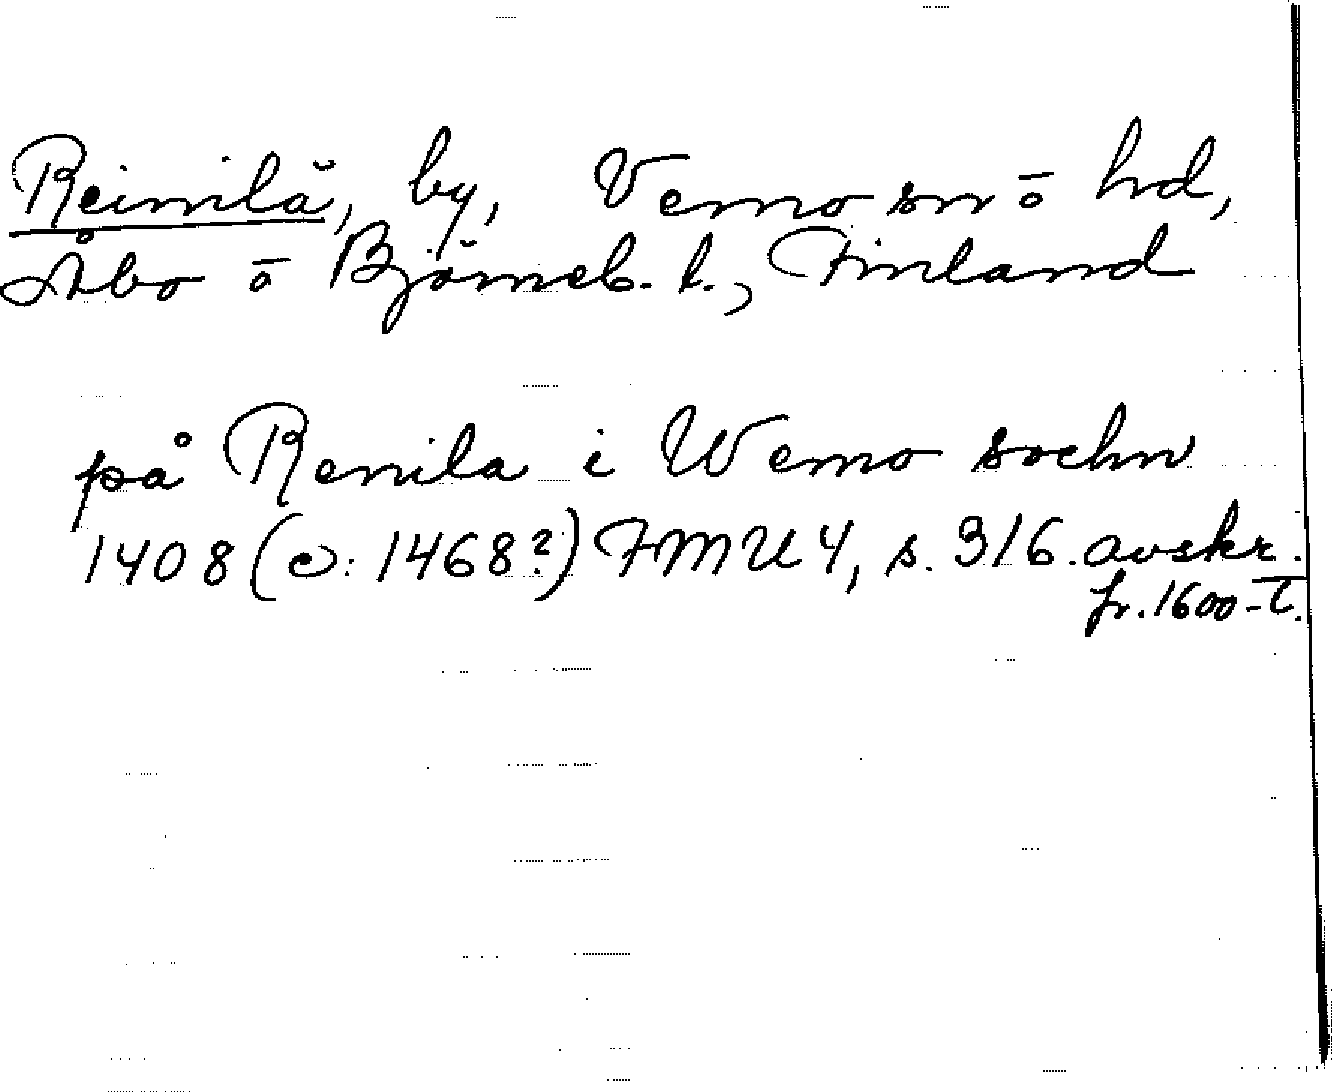 Reimilä, by, Vemo sn ō hd,
Åbo ō Björneb. l., Finland
på Renila i Wemo sochn
1408 (c: 1468?) FMU 4, s. 316. avskr.
fr. 1600-t.